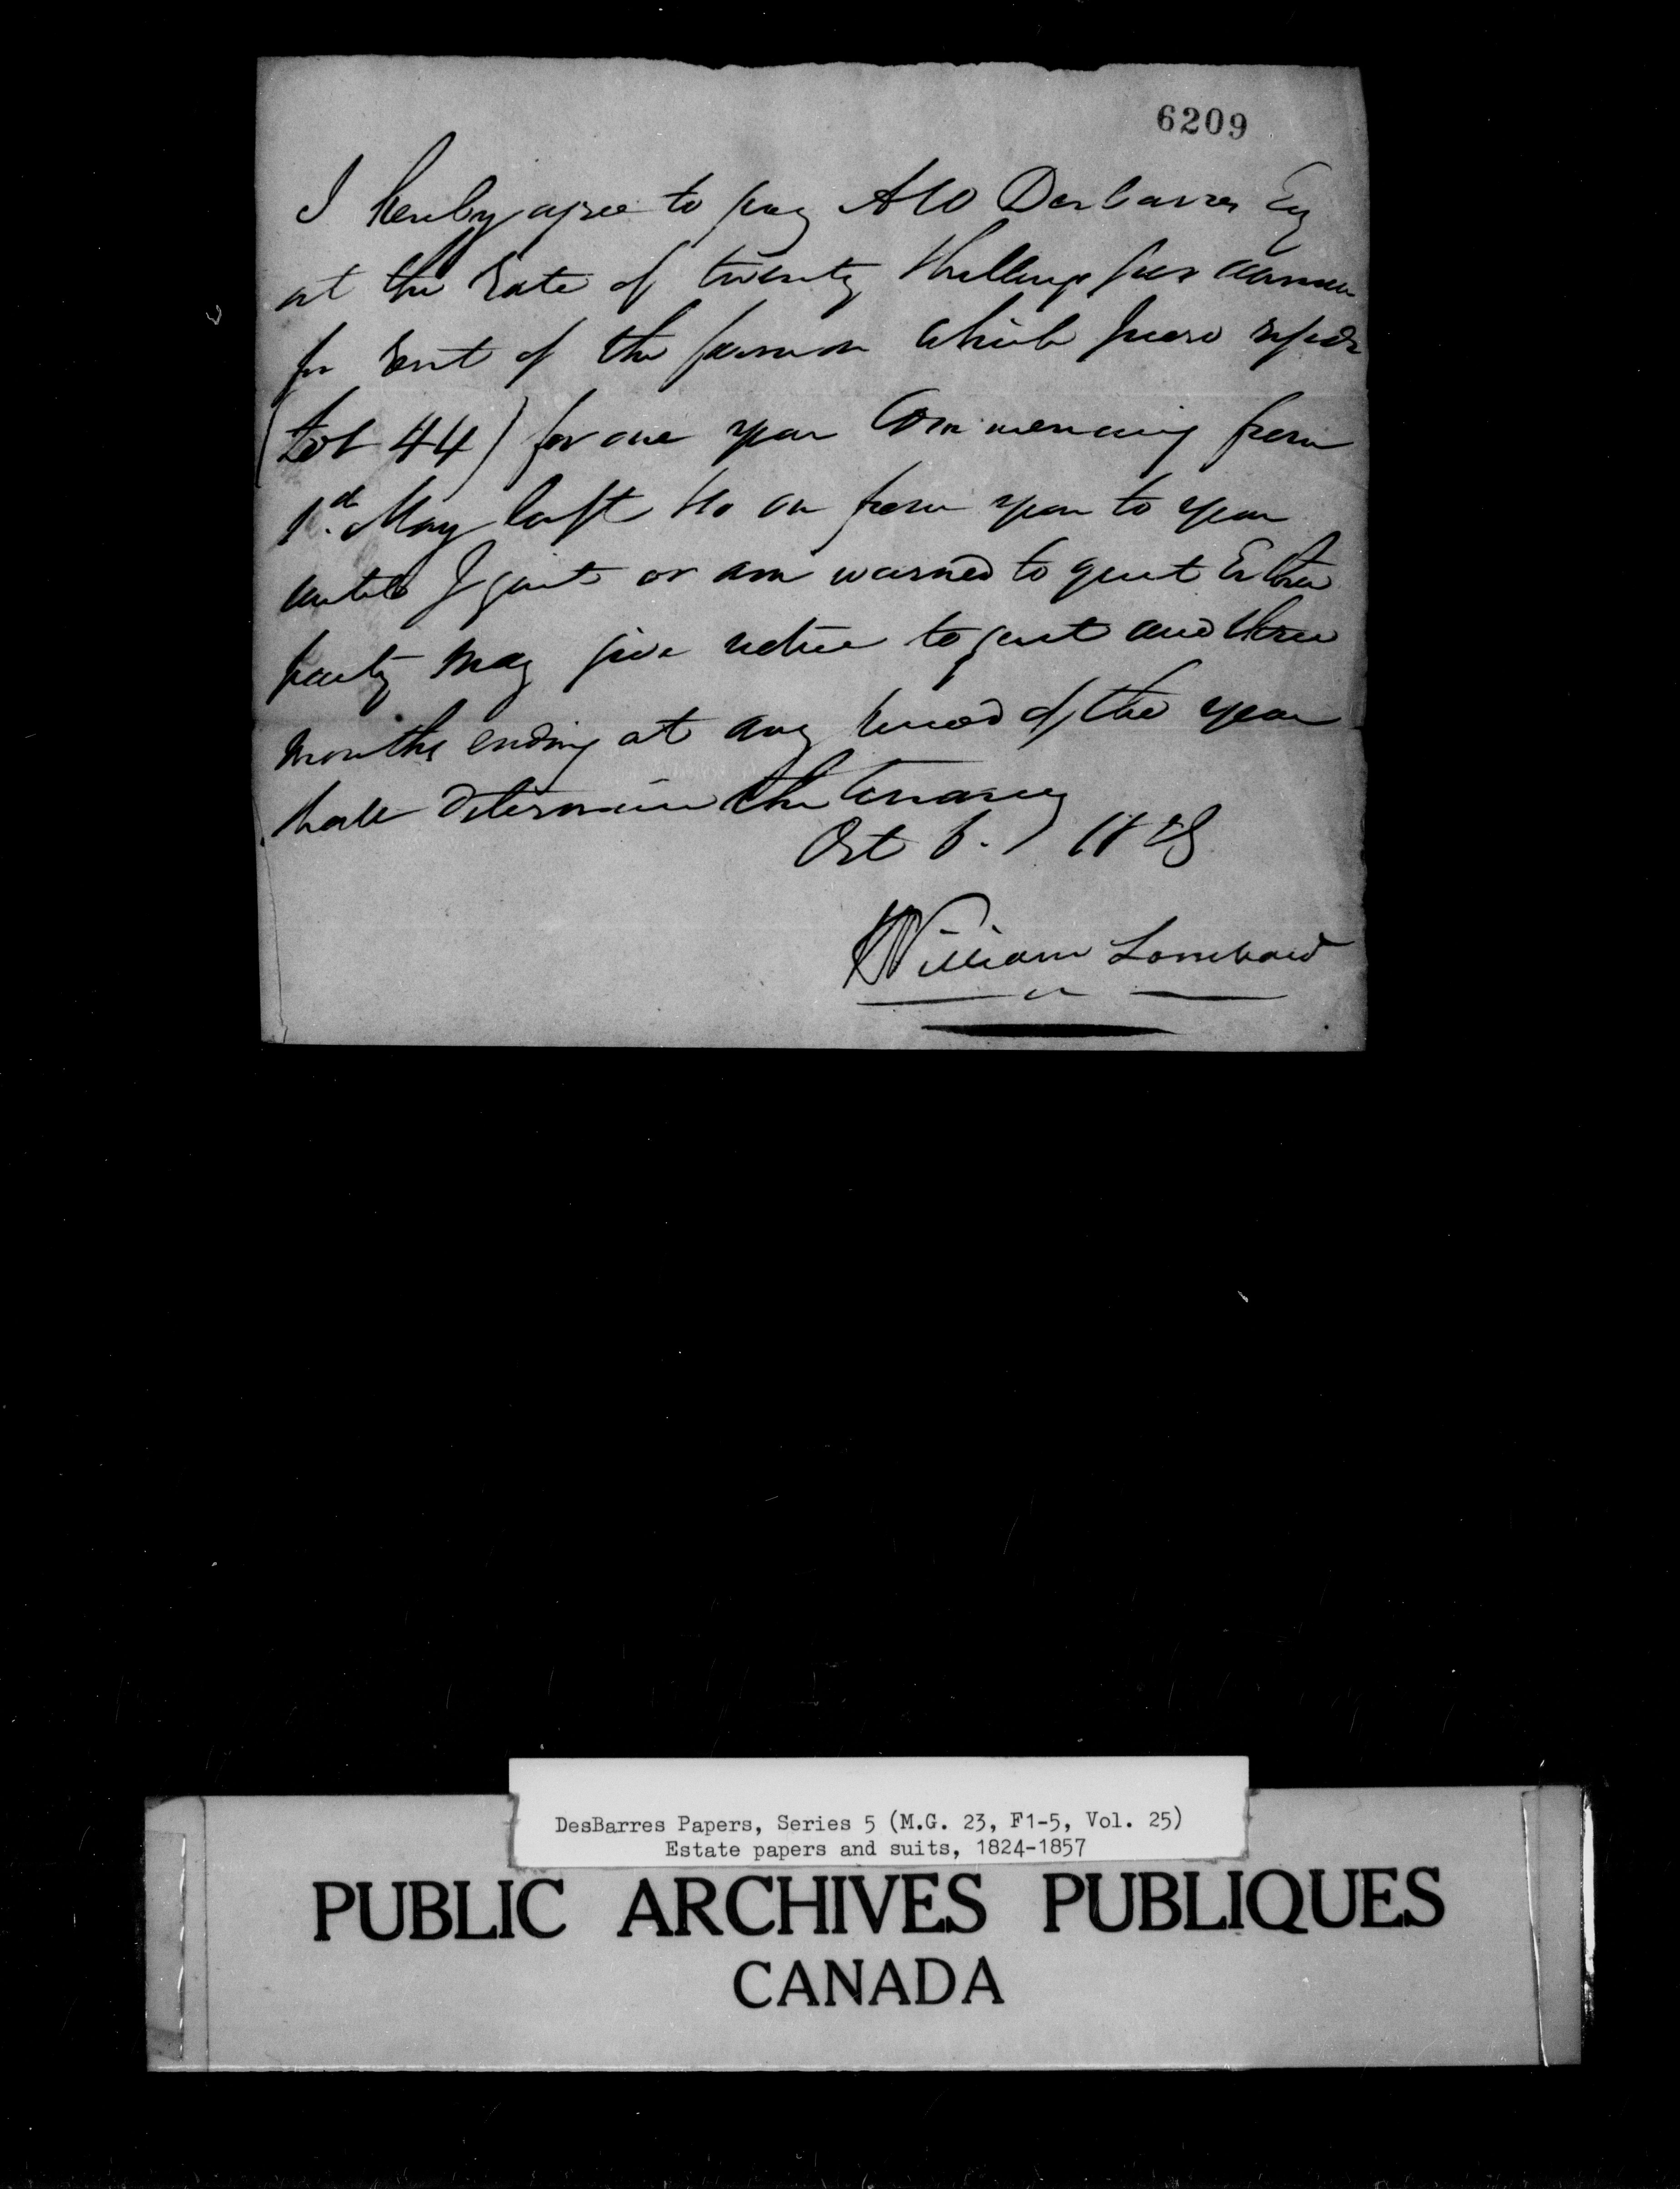 6209
I hereby agree to pay A W DesBarres Esq
at the Rate of twenty shillings per annum
for Rent of the farm on which I now reside
(Lot 44) for one year Commencing from
1st May last & so on from year to year
until I quit or am warned to quit Either
party may give notice to quit and three
months ending at any period of the year
shall determine the tenancy
Oct 6.
William Lombard
DesBarres Papers, Series 5 (M.G. 23, F1-5, Vol. 25)
Estate papers and suits, 1824-1857
PUBLIC ARCHIVES PUBLIQUES
CANADA